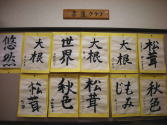 書道クラブ
悠然
大根
世界
大根
大根
松茸
松茸
秋色
松茸
もみじ
秋色